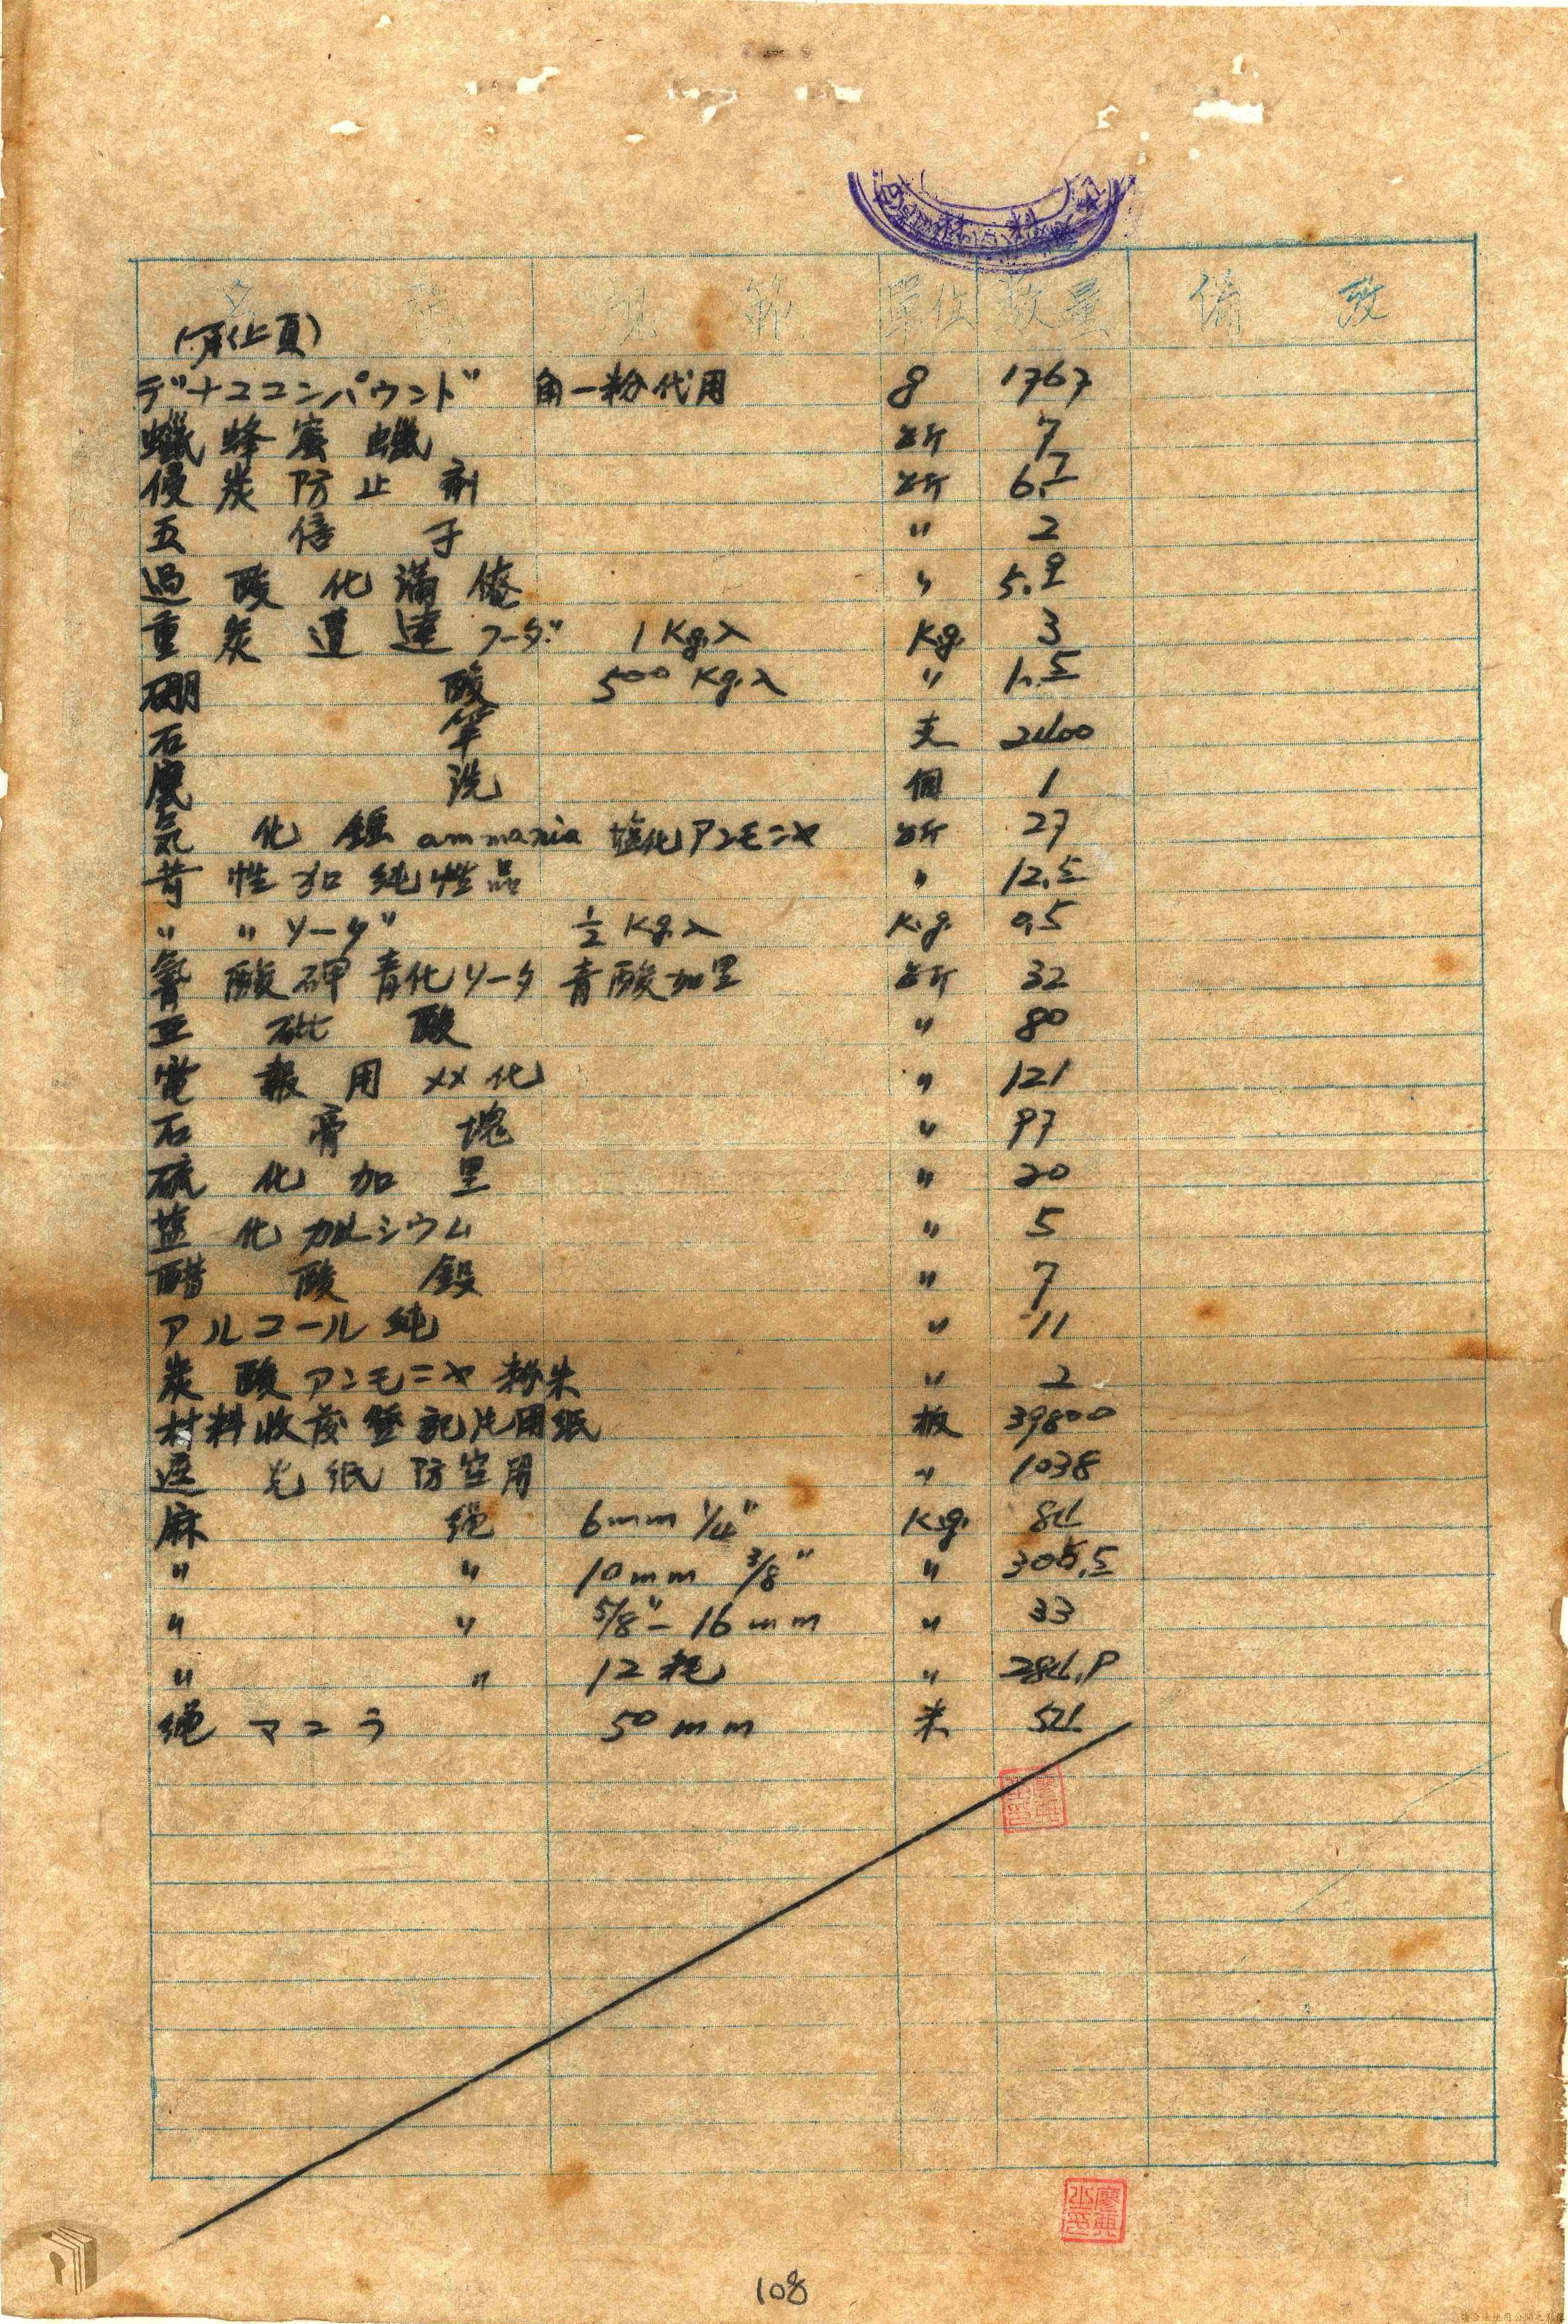 名 稱 規 範 單位 數量 備 考
(承上頁)
デナスコンパウンド 角一粉代用 g 1767
蠟蜂蜜蠟 公斤 7
侵炭防止剤 公斤 6.7
五倍子 〃 2
過酸化滿俺 〃 5.9
重炭遭達ソーダ 1Kg.入 Kg. 3
硼酸 500Kg.入 〃 1.5
石筆 支 2400
洗 個 1
化 ammania 塩化アンモニヤ 公斤 27
苛性加純性品 〃 12.5
〃 〃 ソーダ ½Kg.入 K.g. 0.5
酸碑青化ソータ 青酸加里 公斤 32
亜砒酸 〃 80
電報用 化 〃 121
石膏塊 〃 97
硫化加里 〃 20
塩化カルシウム 〃 5
醋酸鉛 〃 7
アルコール純 〃 11
炭酸アンモニヤ粉末 〃 2
材料收發登記片用紙 板 39800
遮光紙防空用 〃 1038
麻繩 6mm 1/4" K.g. 84
〃 〃 10mm 3/8" 〃 305.5
〃 〃 5/8"- 16mm 〃 33
〃 〃 12耗 〃 284.9
繩マニラ 50mm 米 54
108